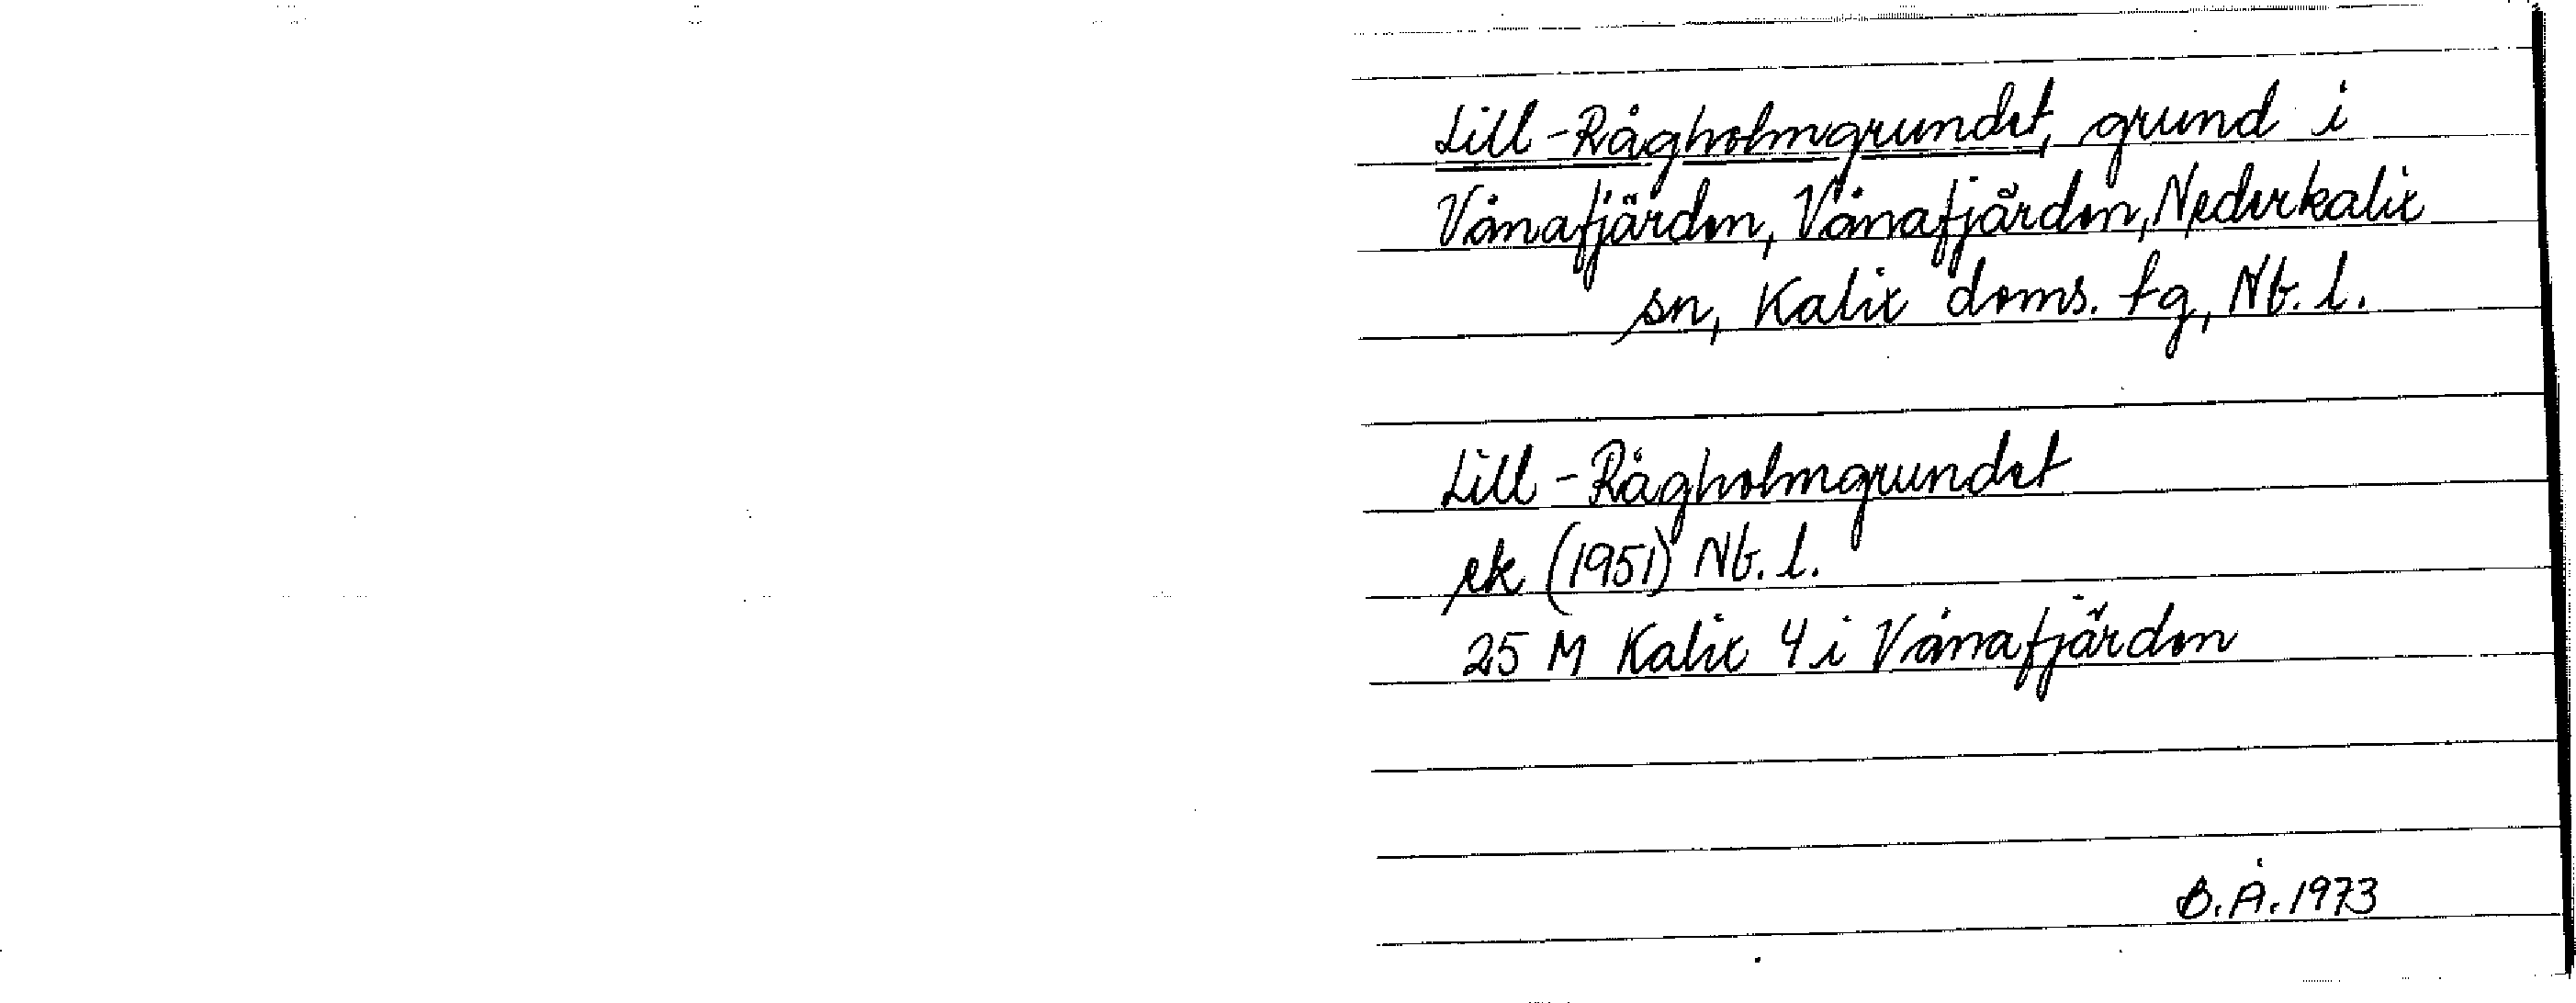 Lill-Rågholmgrundet, grund i
Vånafjärden, Vånafjärden, Nederkalix
sn, Kalix doms. tg, Nb. l.
Lill-Rågholmgrundet
ek (1951) Nb. l.
25 M Kalix 4 i Vånafjärden
B.Å. 1973